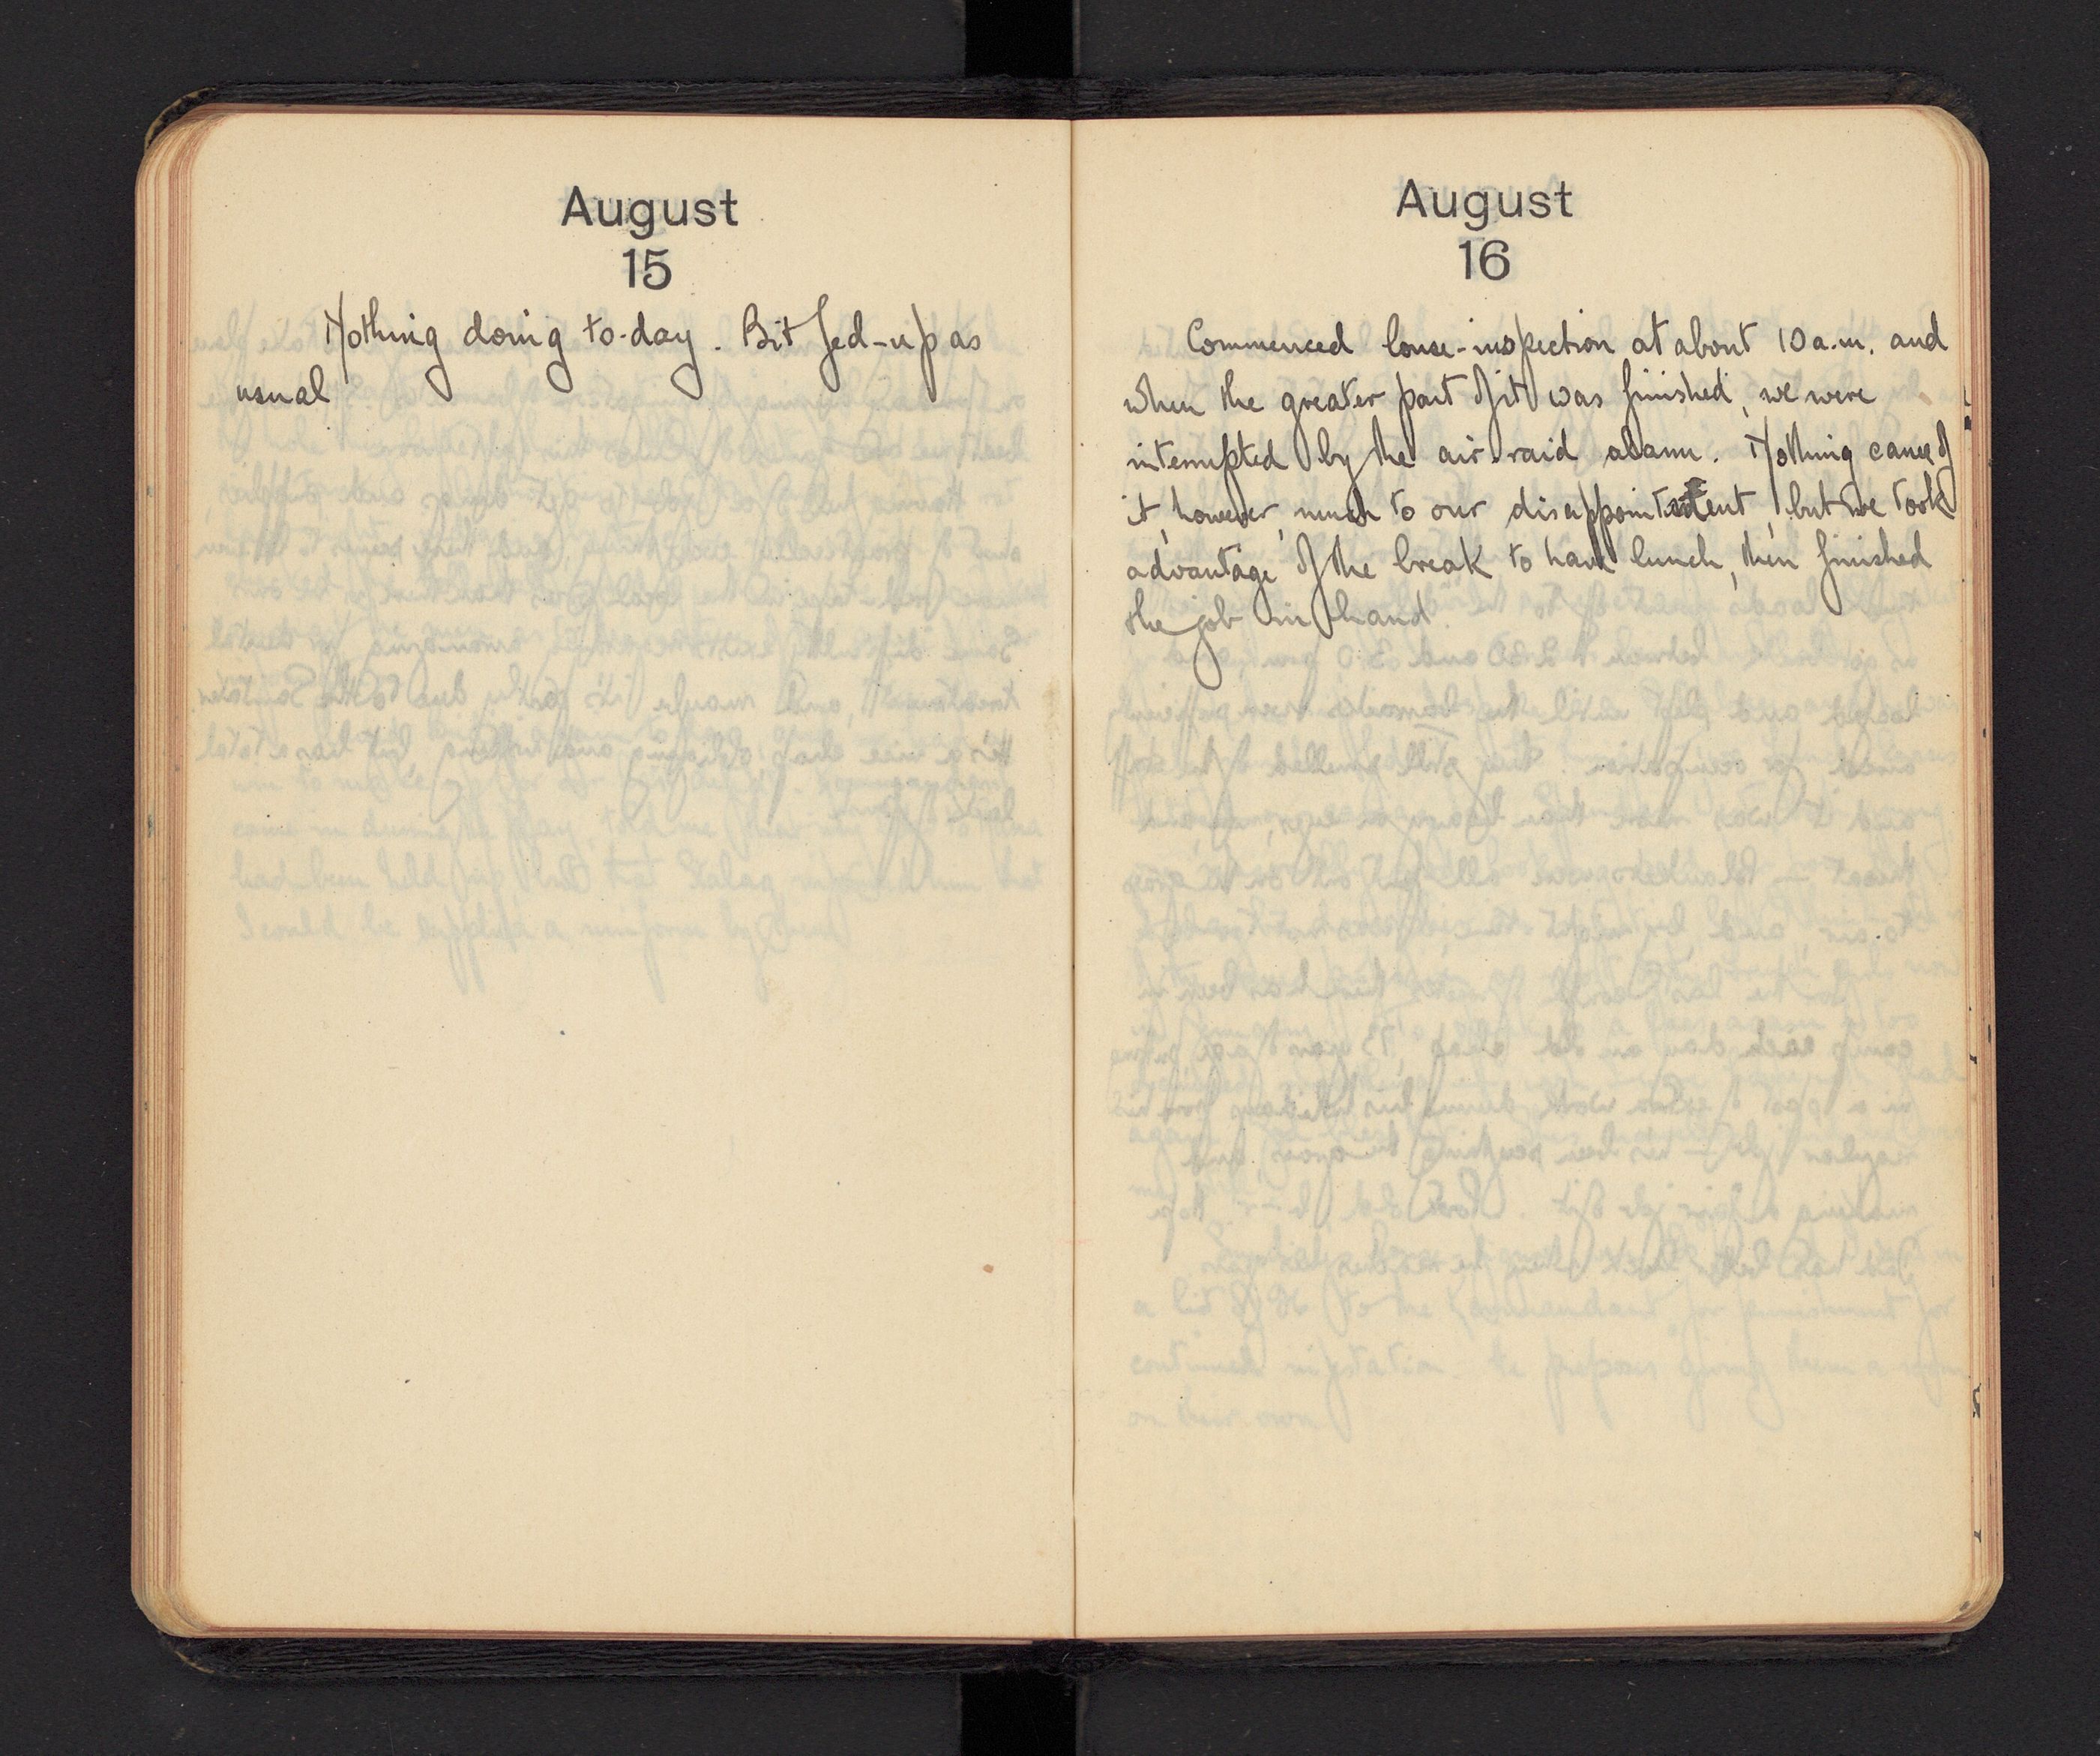 August
15
Nothing doing to-day. Bit fed-up as
usual
August
16
Commenced louse-inspection at about 10 a.m. and
when the greater part of it was finished, we were
interrupted by the air-raid alarm. Nothing came of
it, however, much to our disappointment, but we took
advantage of the break to have lunch, then finished
the job in hand.